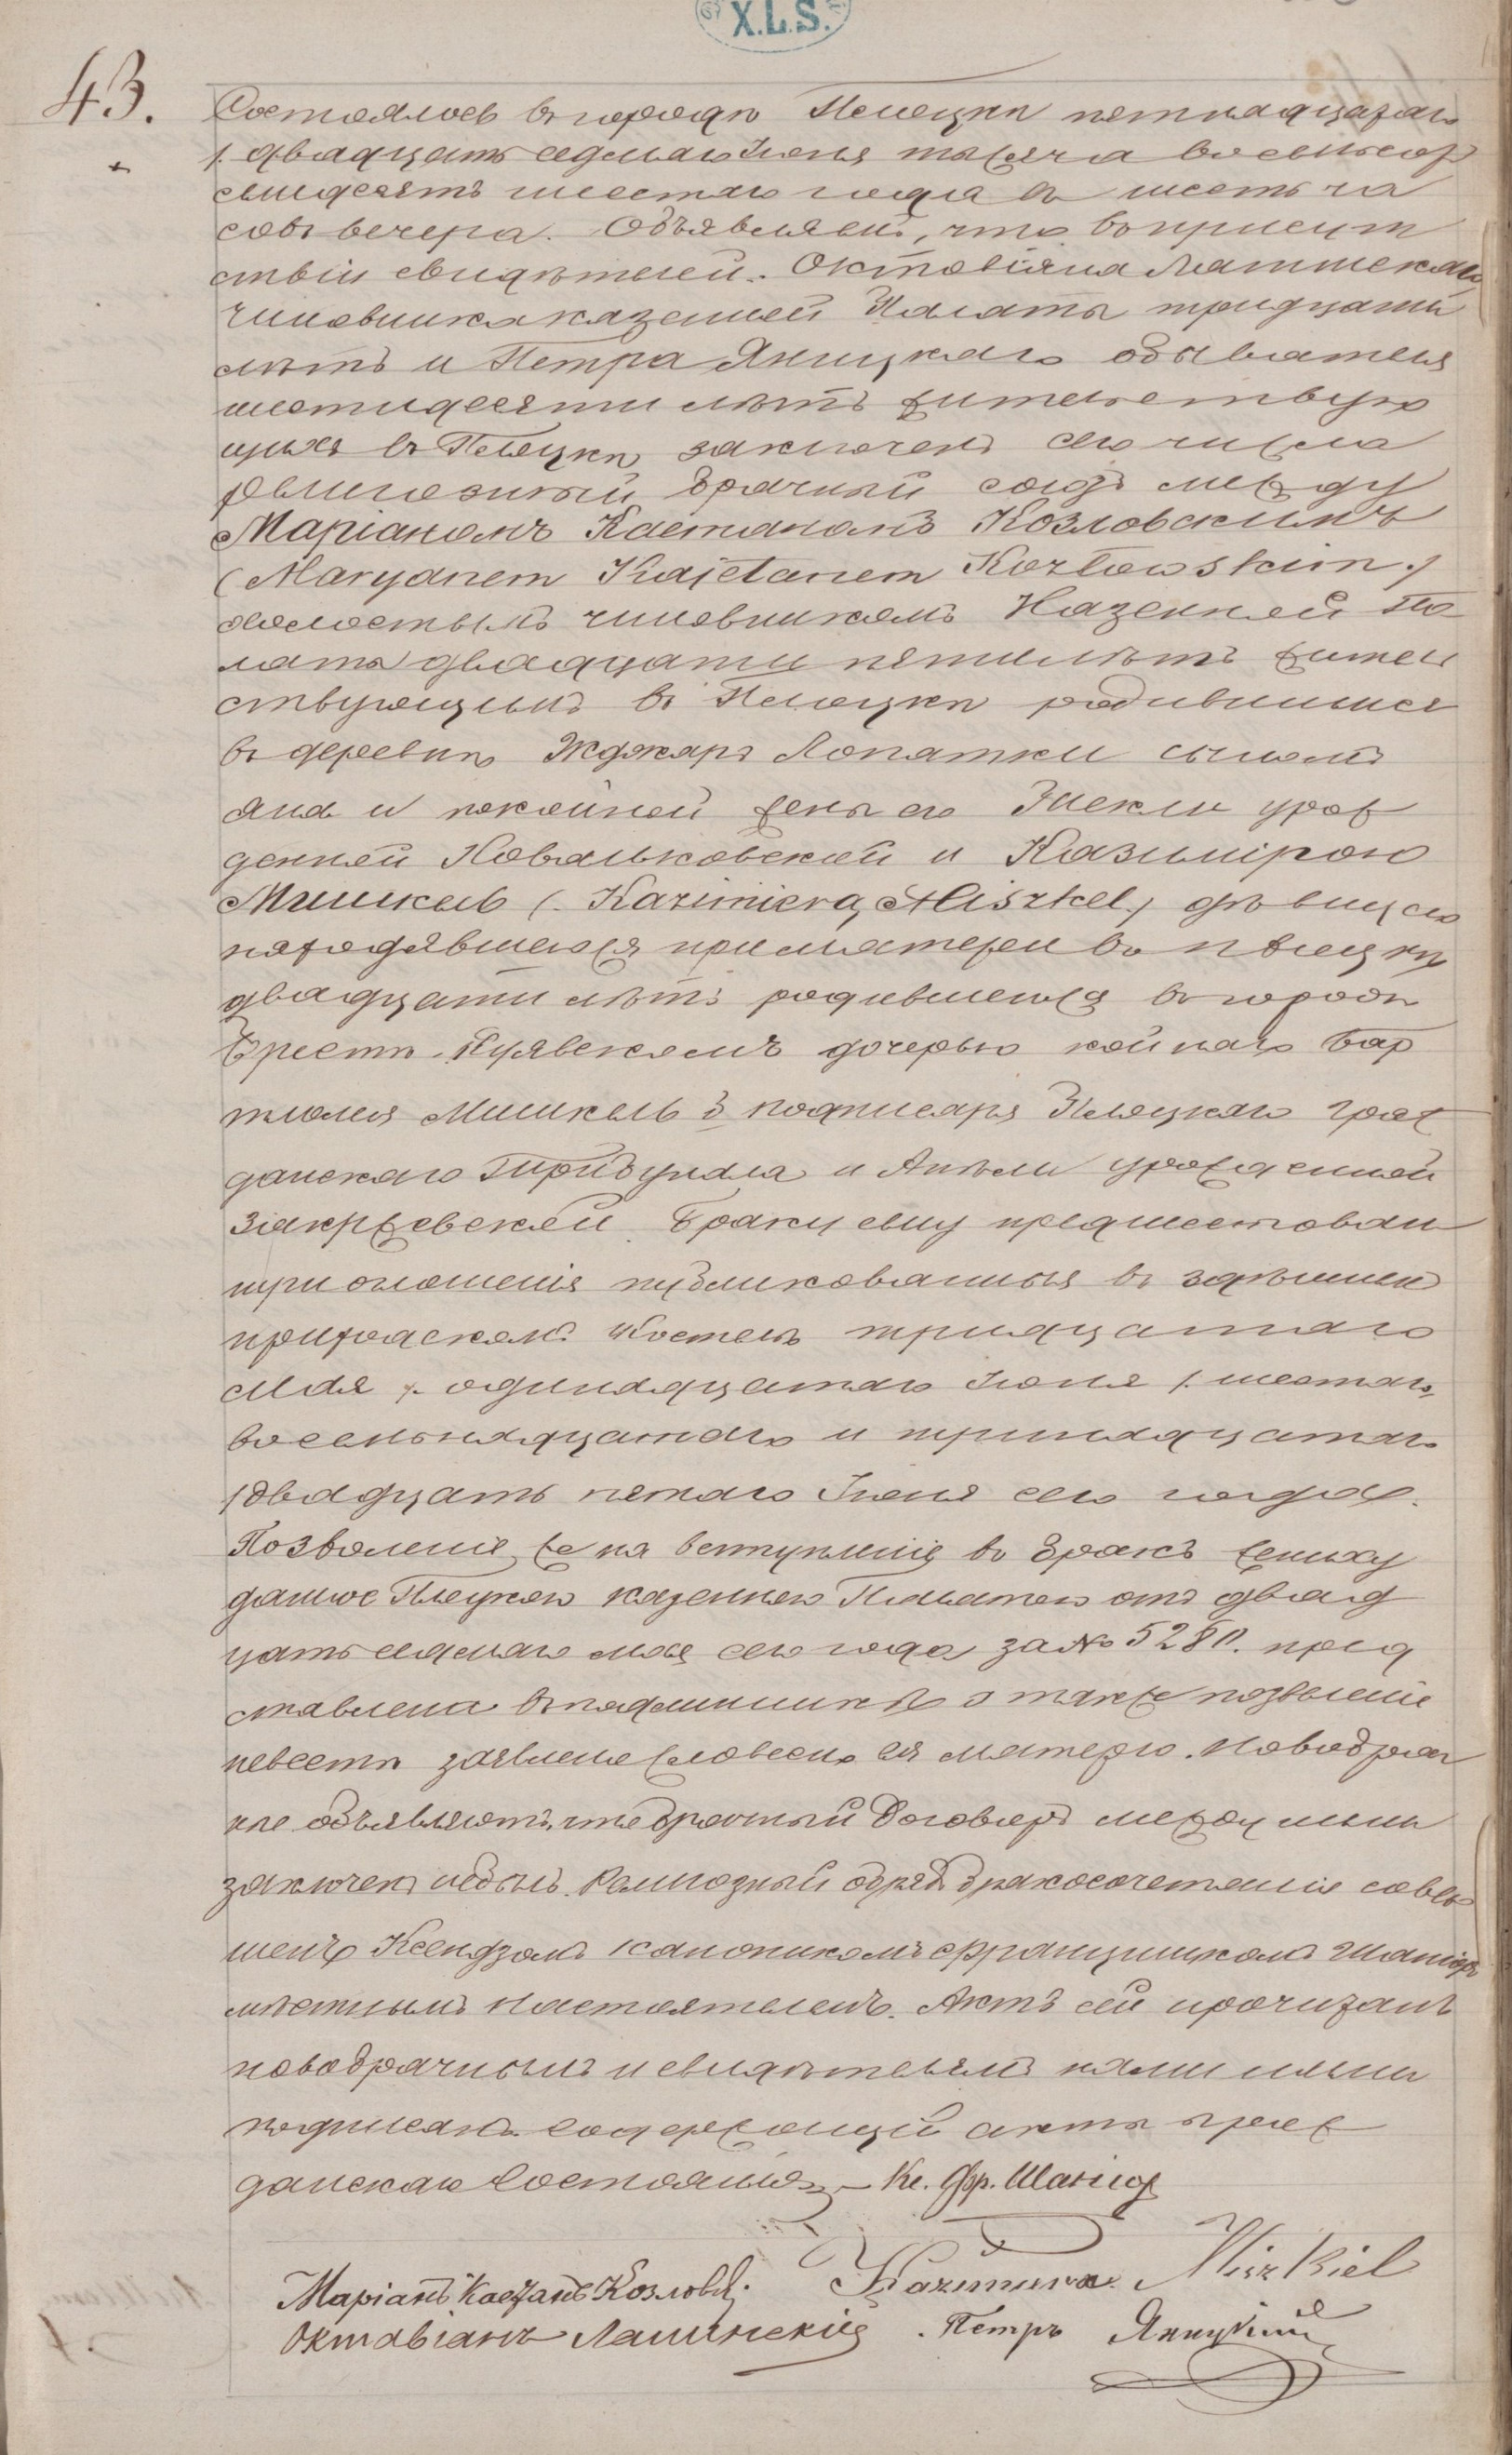 X.L.S.
43.
Состоялось въ городѣ Плоцкѣ пятнадцатаго
/. двадцать седьмаго Іюня тысяча восемьсотъ
семьдесятъ шестаго года въ шесть ча
совъ вечера. Объявляемъ, что въ присут
ствіи свидѣтелей. Октавіяна
чиновника казенной Палаты тридцати
лѣтъ и Петра Яницкаго обывателя
шестидесяти лѣтъ жительствую
щихъ въ Плоцкѣ, заключенъ сего числа
религіозный брачный союзъ между
Маріаномъ Каетаномъ Козловскимъ
(Maryanem Kajetanem Kozłowskim./
холостымъ чиновникомъ Казенной Па
латы двадцати пяти лѣтъ житель
ствующимъ въ Плоцкѣ родившимся
въ деревнѣ Жджаръ Лопатки сыномъ
Яна и покойной жены его Теклы урож
денной Ковальковской и Казимірою
Мишкель (. Kazimierą Miszkel./ дѣвицею
находявшеюся при матери въ Плоцкѣ
двадцати лѣтъ родившеюся въ городѣ
Брестѣ-Куявскомъ дочерью койнаго Бар
тломея Мишкель подписаря Плоцкаго граж
данскаго Трибунала и Анѣли урожденной
Закржевской. Браку сему предшествовали
три оглашенія публикованныя въ здѣшнемъ
приходскомъ Костелѣ тридцатаго
Мая /. одинадцатаго Іюня /. шестаго,
восемьнадцатаго и тринадцатаго
/двадцать пятаго Іюня сего года.
Позволеніе же на вступленіе въ бракъ жениху
данное Плоцкою казенною Палатою отъ двад
цать седьмаго мая сего года за № 5280. пред
ставлена въ подлинникѣ а также позволеніе
невестѣ заявлено словесно ея матерью. Новобрач
ные объявляютъ, что брачный договоръ между ними
заключенъ небылъ. Религіозный обрядъ бракосочетанія совер
шенъ Ксендзомъ каноникомъ Францишкомъ
мѣстнымъ настоятелемъ. Актъ сей прочитанъ
новобрачнымъ и свидѣтелямъ нами и ими
подписанъ. Содержащій акты граж
данскаго Состоянія — Кс. Фр.
Маріанъ Каетанъ Козловск. Kazimiera Miszkiel
Октавіанъ . Петръ Яницкій